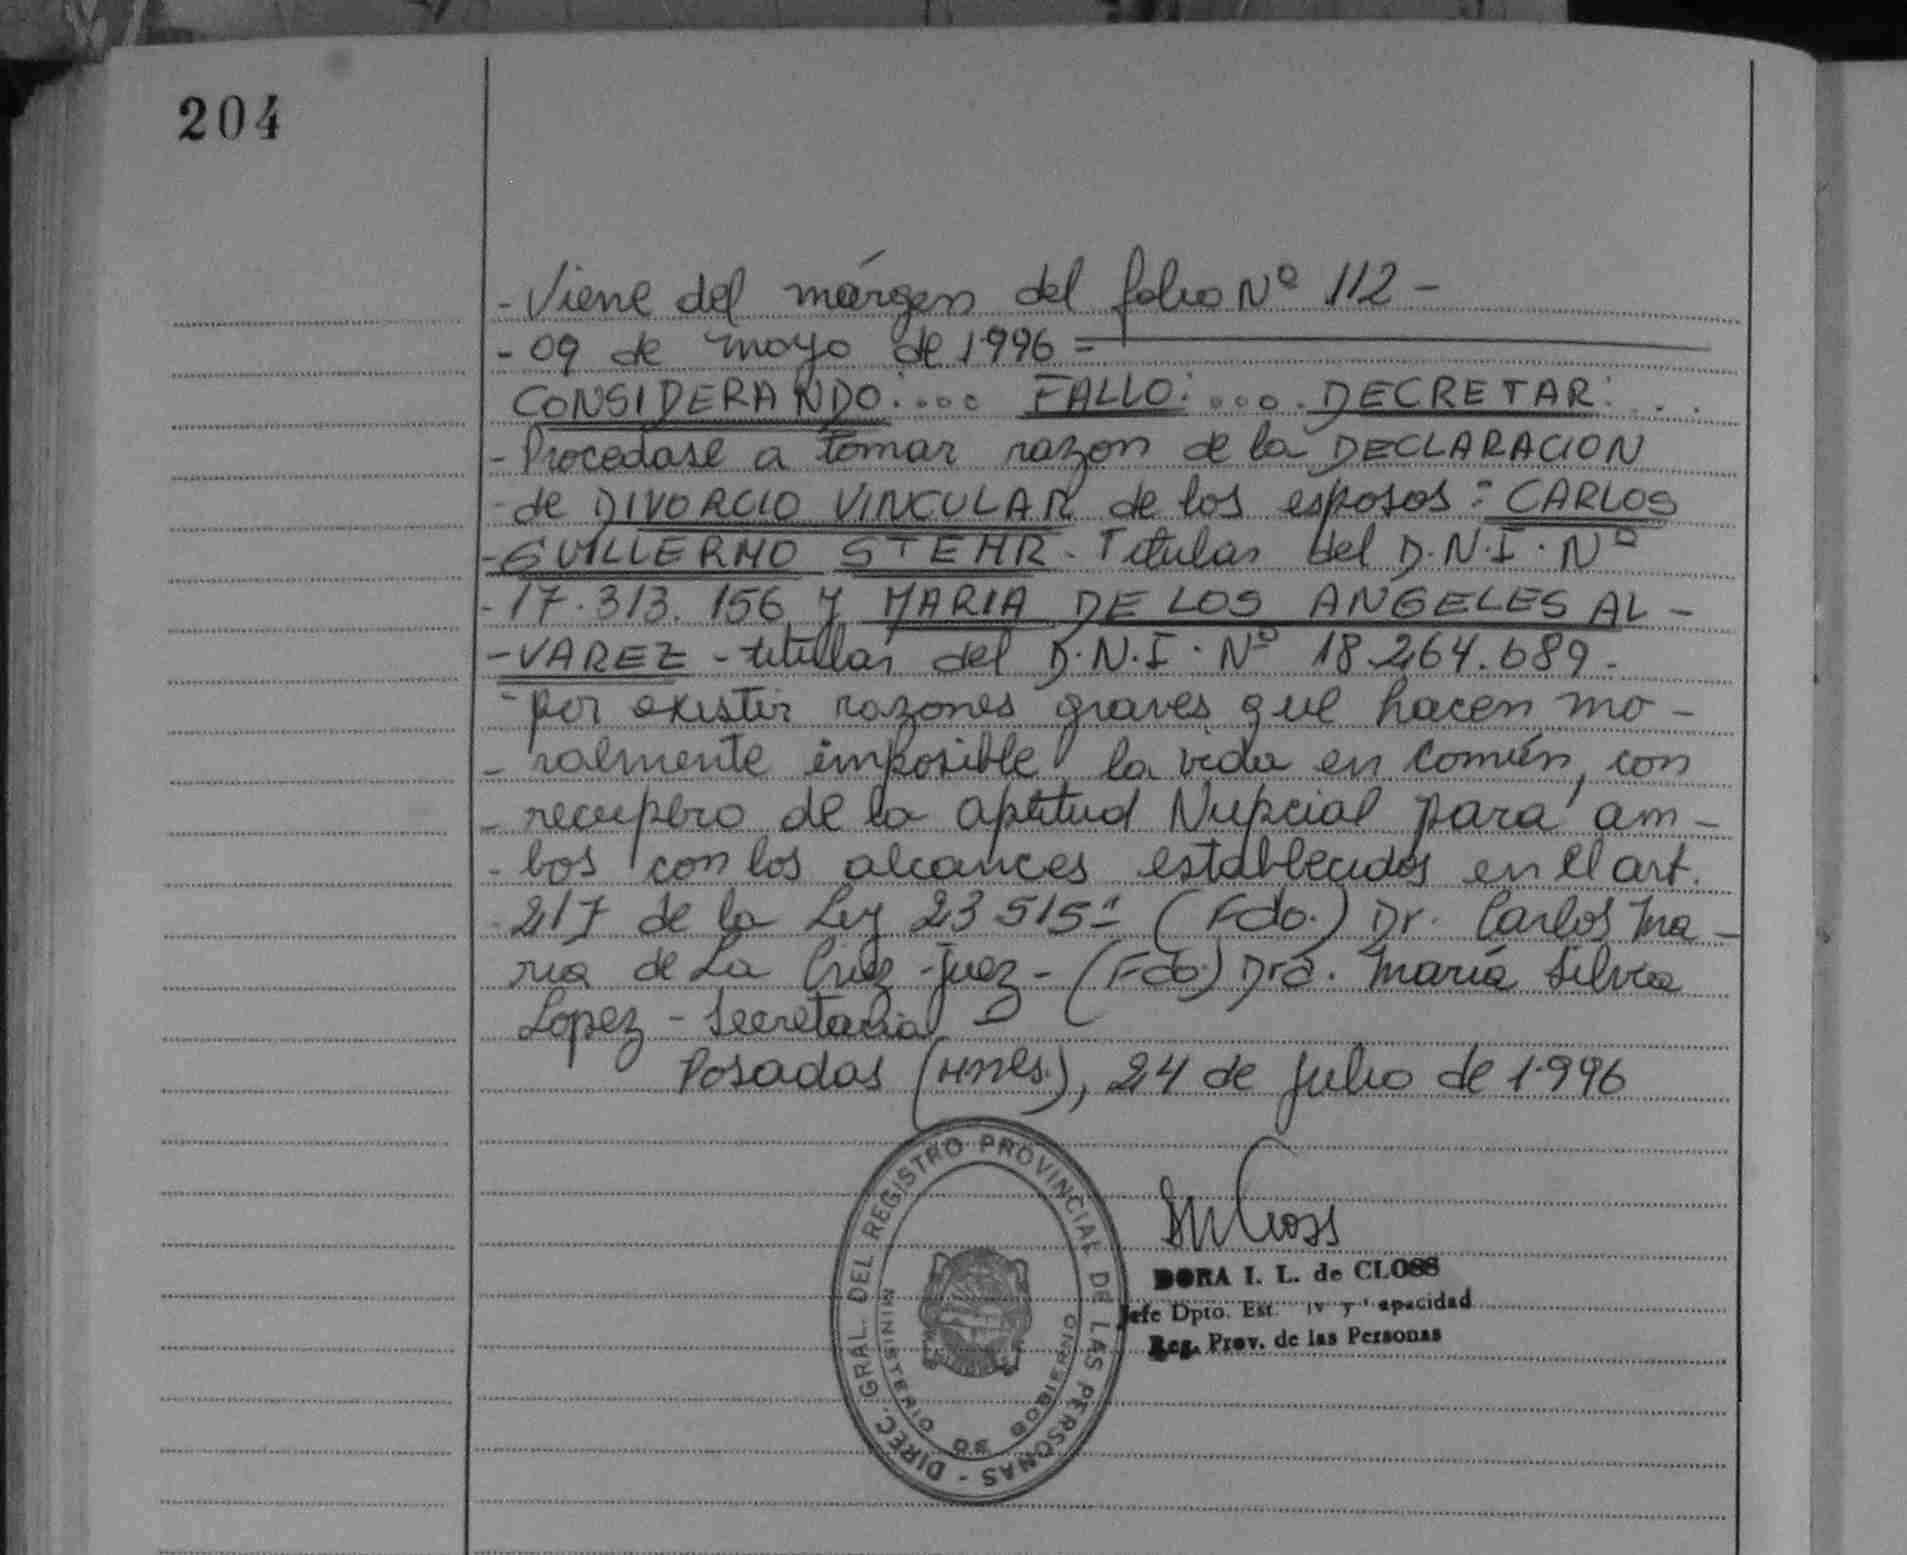 204
- Viene del márgen del folio Nº 112 -
- 09 de mayo de 1996 =
CONSIDERANDO: .... FALLO: .... DECRETAR: ...
- Procedase a tomar razon de la DECLARACION
- de DIVORCIO VINCULAR de los esposos: CARLOS
- GUILLERMO STEHR - Titular del D.N.I. Nº
- 17.313.156 y MARIA DE LOS ANGELES AL-
- VAREZ - titular del D.N.I. Nº 18.264.689.-
- por existir razones graves que hacen mo-
- ralmente imposible la vida en común, con
- recupero de la aptitud Nupcial para am-
- bos con los alcances establecidos en el art.
- 217 de la Ley 23515 (Fdo.) Dr. Carlos Ma-
ria de La Cruz - Juez - (Fdo.) Dra. María Silvia
Lopez - Secretaria
Posadas (Mnes.), 24 de Julio de 1996
DIREC. GRAL. DEL REGISTRO PROVINCIAL DE LAS PERSONAS -
MINISTERIO DE GOBIERNO
DORA I. L. de CLOSS
Jefe Dpto. Est. y Capacidad
Reg. Prov. de las Personas